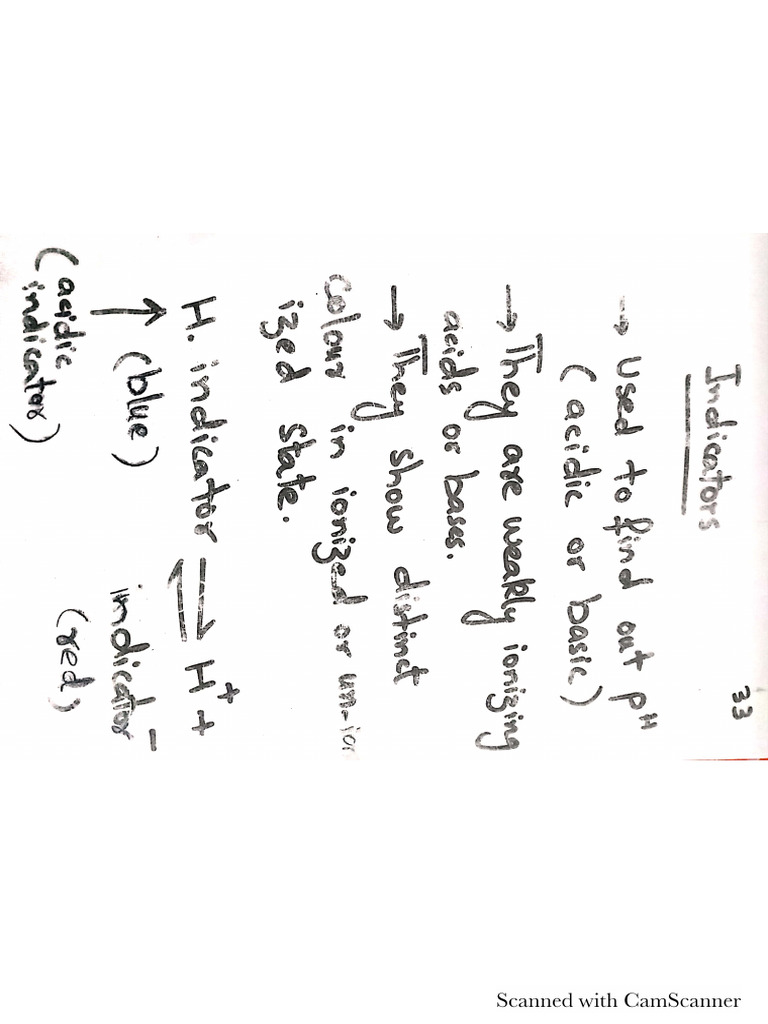 33
Indicators
→ Used to find out pH
(acidic or basic)
→ They are weakly ionizing
acids or bases.
→ They show distinct
colour in ionized or un-ion
ized state.
H. indicator ⇌ H⁺ +
(blue) indicator⁻
↑ (red)
(acidic
indicator)
Scanned with CamScanner